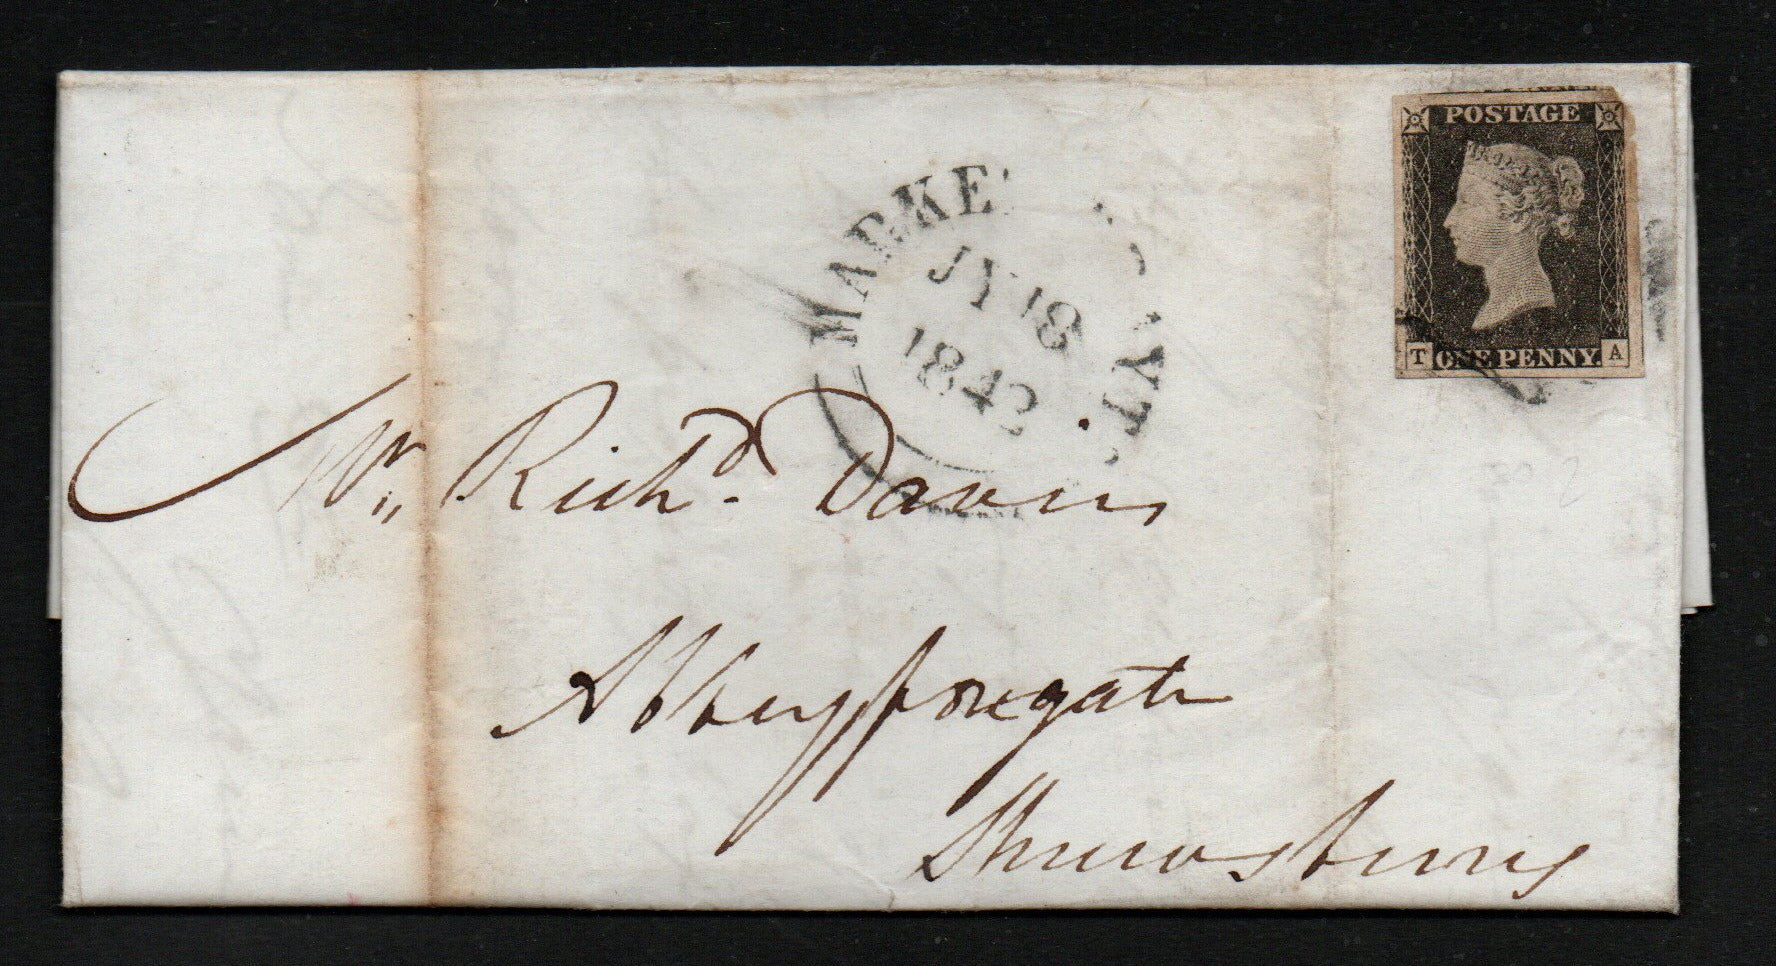 POSTAGE
T ONE PENNY. A
MARKE
JY 18
1842
Mr. Richd. Davis
Abbeyforegate
Shrewsbury